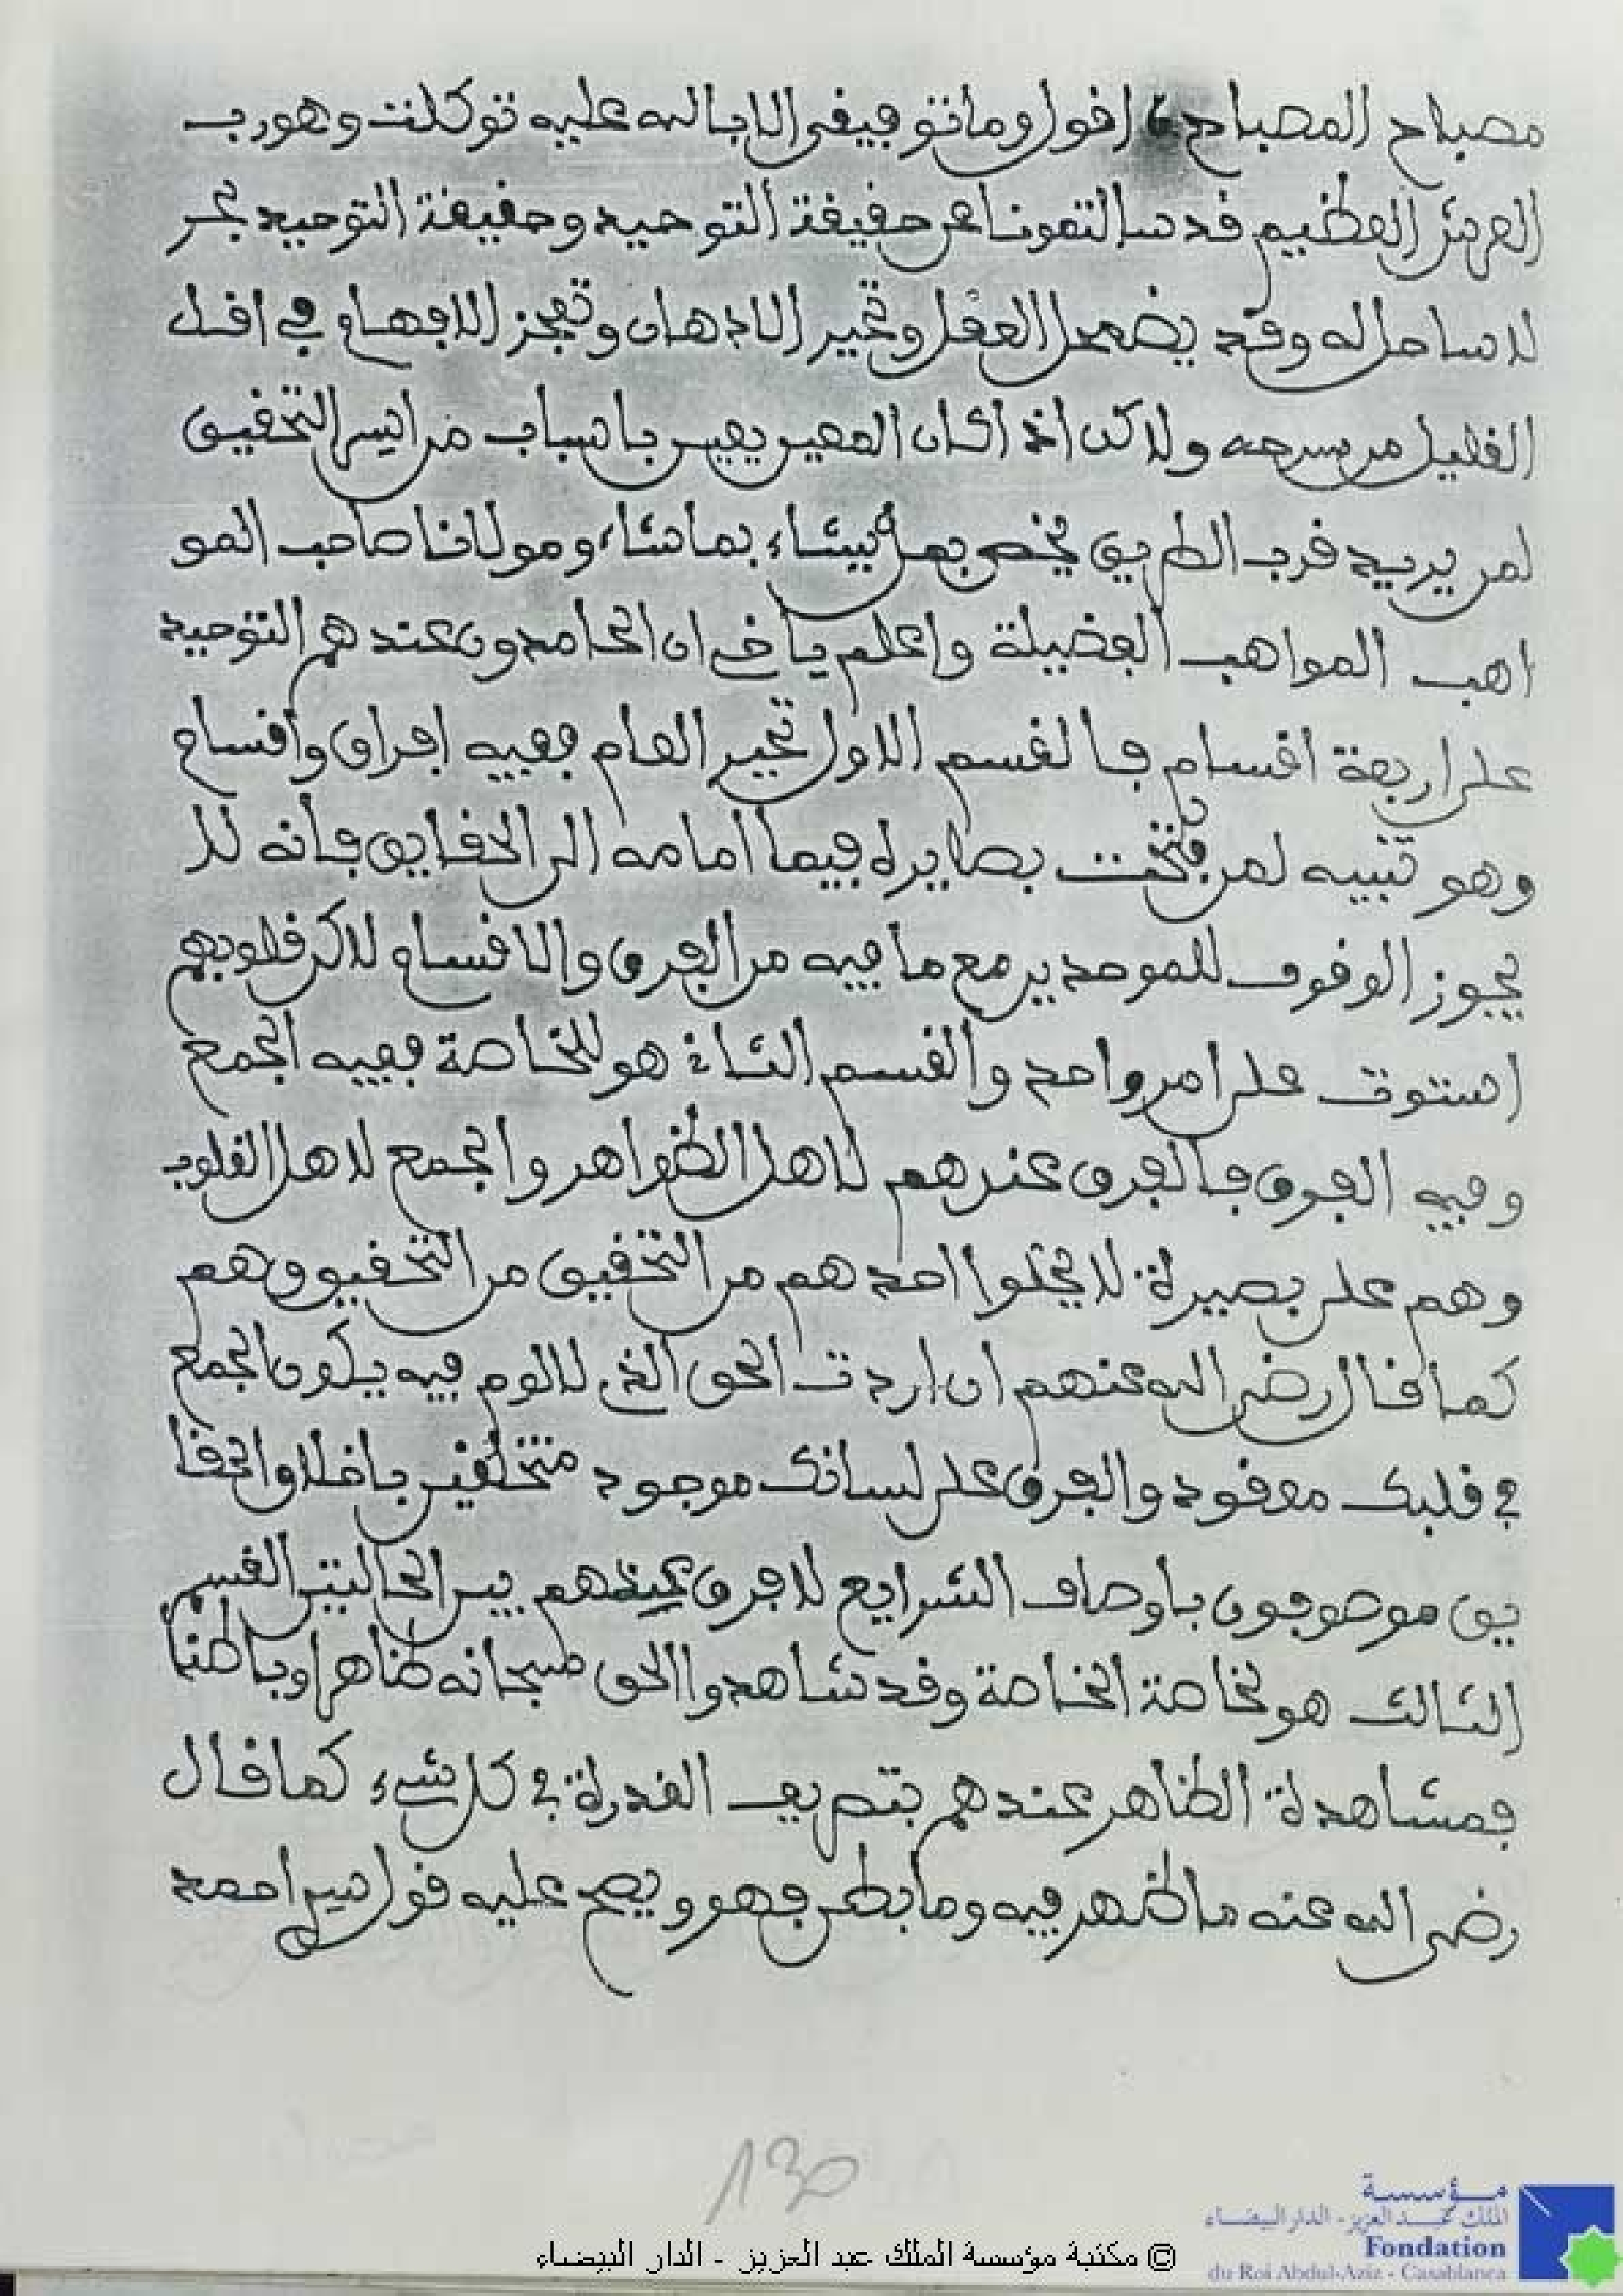 مصباح المصباح، اقول وما توفيقي الا بالله عليه توكلت وهو رب
العرش العظيم قد سالتمونا عن حقيقة التوحيد وحقيقة التوحيد بحر
لا ساحل له وقد يضمحل العقل وتحير الاذهان وتعجز الافهام في اقل
القليل من سرحه ولاكن اذا كان المعين يعين باسباب من ايسر التحقيق
لمن يريد قرب الطريق يخص بها من يشاء بما شاء ومولانا صاحب المو
اهب المواهب الفضيلة واعلم ياخي ان الحامدون عندهم التوحيد
على اربعة اقسام فالقسم الاول تحير العام ففيه افراق واقسام
وهو تنبيه لمن فتحت بصايره فيما امامه الى الحقايق فانه لا
يجوز الوقوف للموحدين مع ما فيه من الفرق والاقسام لاكن قلوبهم
استوت على امر واحد والقسم الثاني هو للخاصة ففيه الجمع
وفيه الفرق فالفرق عندهم لاهل الظواهر والجمع لاهل القلوب
وهم على بصيرة لا يخلوا احدهم من التحقيق من التحقيق وهم
كما قال رضي الله عنهم ان اردت الحق الذي لا لوم فيه يكون الجمع
في قلبك معقود والفرق على لسانك موجود متخلقين باخلاق الحقا
يق موصوفون باوصاف الشرايع لا فرق عندهم بين الحالتين القسم
الثالث هو لخاصة الخاصة وقد شاهدوا الحق سبحانه ظاهرا وباطنا
فمشاهدة الظاهر عندهم بتصريف القدرة في كل شيء كما قال
رضي الله عنه ما ظهر فيه وما بطن فهو ويصح عليه قول سيدي احمد
130
© مكتبة مؤسسة الملك عبد العزيز - الدار البيضاء
مؤسسة
الملك عبد العزيز - الدار البيضاء
Fondation
du Roi Abdul-Aziz - Casablanca